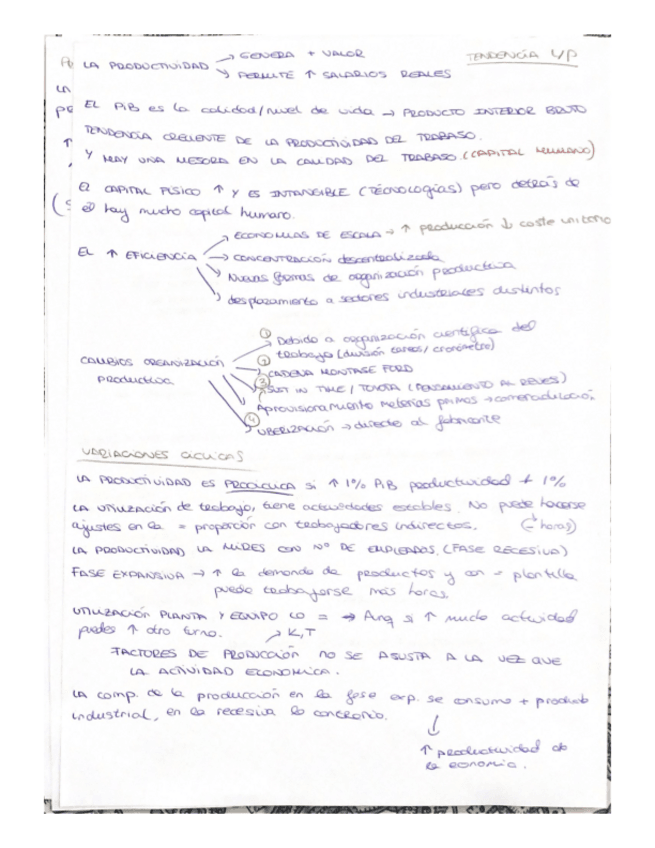 TENDENCIA L/P
LA PRODUCTIVIDAD → GENERA + VALOR
↘ PERMITE ↑ SALARIOS REALES
EL PIB es la calidad/nivel de vida → PRODUCTO INTERIOR BRUTO
TENDENCIA CRECIENTE DE LA PRODUCTIVIDAD DEL TRABAJO.
Y HAY UNA MEJORA EN LA CALIDAD DEL TRABAJO. (CAPITAL HUMANO)
El CAPITAL FISICO ↑ Y ES INTANGIBLE (Técnologías) pero detrás de
él hay mucho capital humano.
→ ECONOMIAS DE ESCALA → ↑ producción ↓ coste unitario
EL ↑ EFICIENCIA → CONCENTRACIÓN descentralizada
→ Nuevas formas de organización productiva
↘ desplazamiento a sectores industriales distintos
① Debido a organización científica del
trabajo (división tareas/ cronómetro)
CAMBIOS ORGANIZACIÓN ② CADENA MONTAJE FORD
PRODUCTIVA ③ JUST IN TIME / TOYOTA (PENSAMIENTO AL REVÉS)
Aprovisionamiento materias primas → comercialización
④ UBERIZACIÓN → directo al fabricante
VARIACIONES CÍCLICAS
LA PRODUCTIVIDAD ES PROCICLICA si ↑ 1% PIB productividad + 1%
LA UTILIZACIÓN de trabajo, tiene actividades estables. No puede hacerse
ajustes en la = proporción con trabajadores indirectos. (- horas)
LA PRODUCTIVIDAD LA MIRES CON Nº DE EMPLEADOS. (FASE RECESIVA)
FASE EXPANSIVA → ↑ la demanda de productos y con = plantilla
puede trabajarse más horas.
UTILIZACIÓN PLANTA Y EQUIPO LO = → Anq si ↑ mucho actividad
puedes ↑ otro turno. ↗ K,T
FACTORES DE PRODUCCIÓN no SE AJUSTA A LA VEZ QUE
LA ACTIVIDAD ECONOMICA.
LA comp. de la producción en la fase exp. se consume + producto
industrial, en la recesiva lo contrario.
↓
↑ productividad de
la economia.